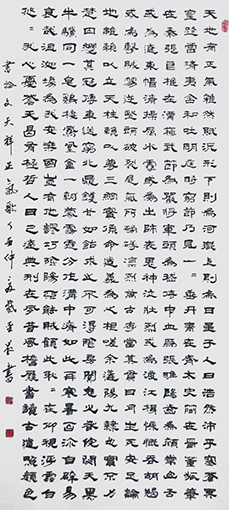 天地有正氣雜然賦流形下則為河嶽上則為日星於人曰浩然沛乎塞蒼冥
皇路當清夷含和吐明庭時窮節乃見一一垂丹青在齊太史簡在晉董狐筆
在秦張良椎在漢蘇武節為嚴將軍頭為嵇侍中血為張睢陽齒為顏常山舌
或為遼東帽清操厲冰雪或為出師表鬼神泣壯烈或為渡江楫慷慨吞胡羯
或為擊賊笏逆豎頭破裂是氣所磅礴凜烈萬古存當其貫日月生死安足論
地維賴以立天柱賴以尊三綱實繫命道義為之根嗟予遘陽九隸也實不力
楚囚纓其冠傳車送窮北鼎鑊甘如飴求之不可得陰房闃鬼火春院閟天黑
牛驥同一皂雞棲鳳凰食一朝濛霧露分作溝中瘠如此再寒暑百沴自辟易
哀哉沮洳場為我安樂國豈有他繆巧陰陽不能賊顧此耿耿在仰視浮雲白
悠悠我心憂蒼天曷有極哲人日已遠典刑在夙昔風簷展書讀古道照顏色
書錄文天祥正氣歌丁酉仲夏書